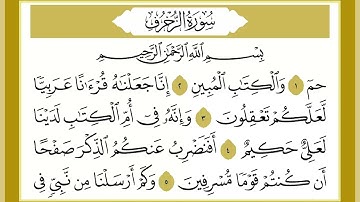 سُورَةُ الزُّخْرُفِ
بِسْمِ اللَّهِ الرَّحْمَٰنِ الرَّحِيمِ
حمٓ ١ وَالْكِتَابِ الْمُبِينِ ٢ إِنَّا جَعَلْنَاهُ قُرْءَانًا عَرَبِيًّا
لَّعَلَّكُمْ تَعْقِلُونَ ٣ وَإِنَّهُ فِىٓ أُمِّ الْكِتَابِ لَدَيْنَا
لَعَلِىٌّ حَكِيمٌ ٤ أَفَنَضْرِبُ عَنكُمُ الذِّكْرَ صَفْحًا
أَن كُنتُمْ قَوْمًا مُّسْرِفِينَ ٥ وَكَمْ أَرْسَلْنَا مِن نَّبِىٍّ فِى